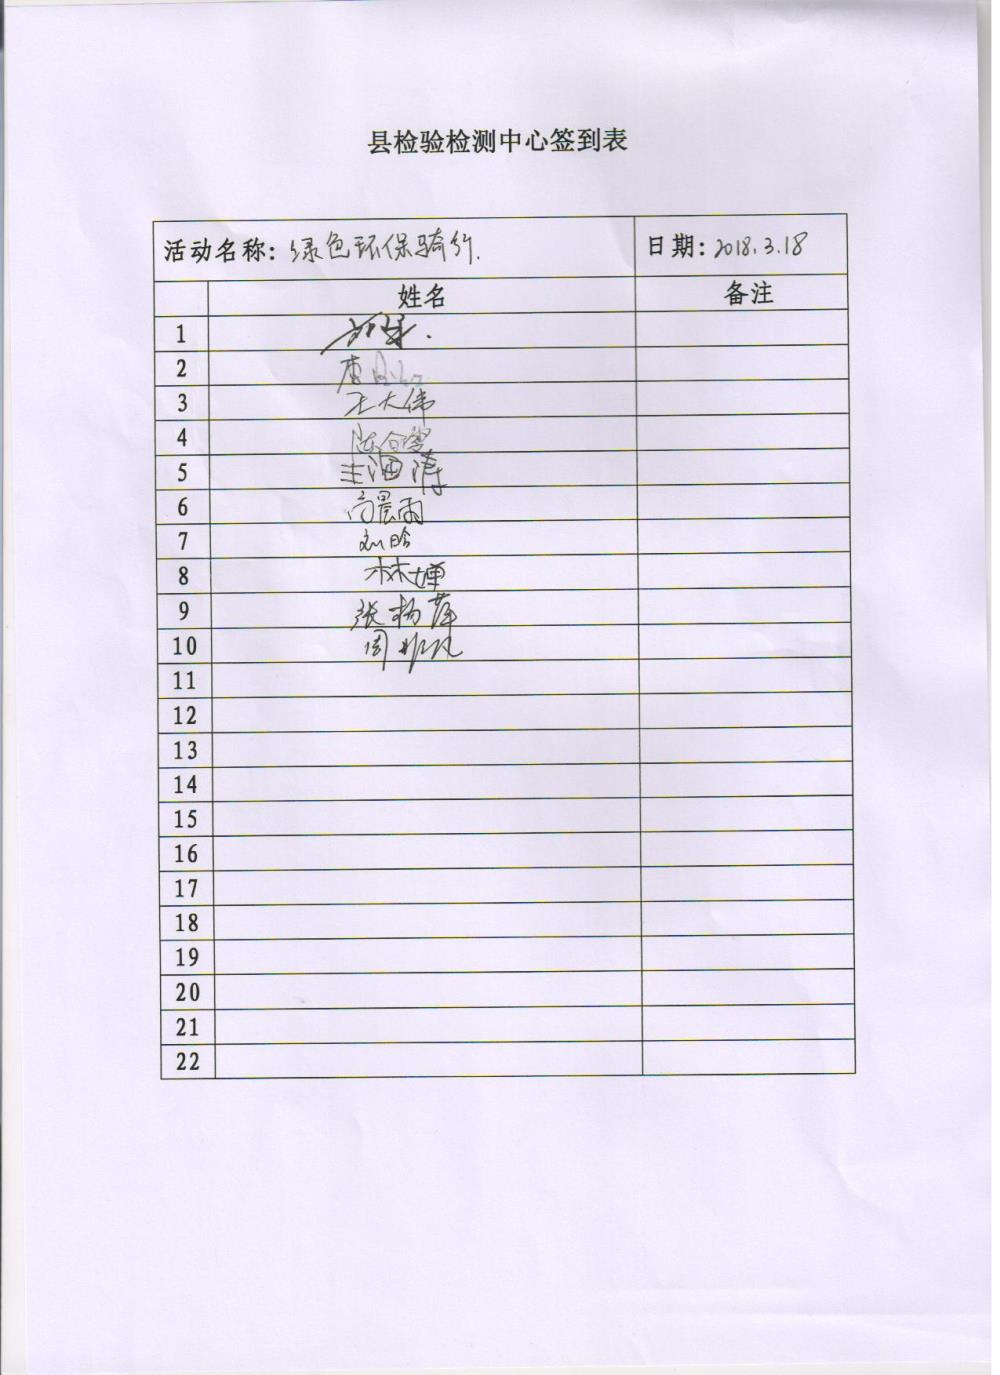 县检验检测中心签到表
活动名称: 绿色环保骑行.
日期: 2018.3.18
姓名 备注
1
2 李
3 王大伟
4 陈
5 王海涛
6 高晨雨
7 刘晗
8 林婵
9 张杨萍
10 周
11
12
13
14
15
16
17
18
19
20
21
22